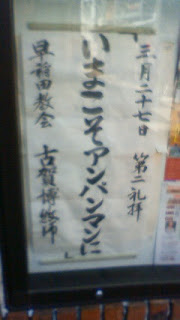 三月二十七日 第二礼拝
いまこそアンパンマンに
早稲田教会 古賀博牧師